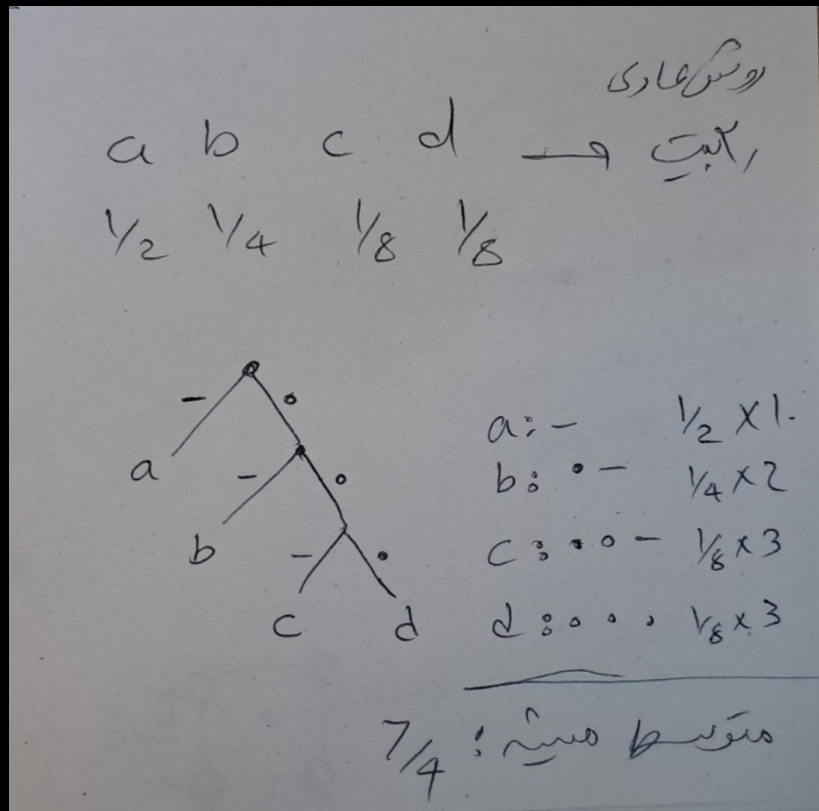 روش عادی
a b c d → ۲ بیت
1/2 1/4 1/8 1/8
- •
a - •
b - •
c d
a: - 1/2 × 1
b: • - 1/4 × 2
c: • • - 1/8 × 3
d: • • • 1/8 × 3
متوسط میشه: 7/4